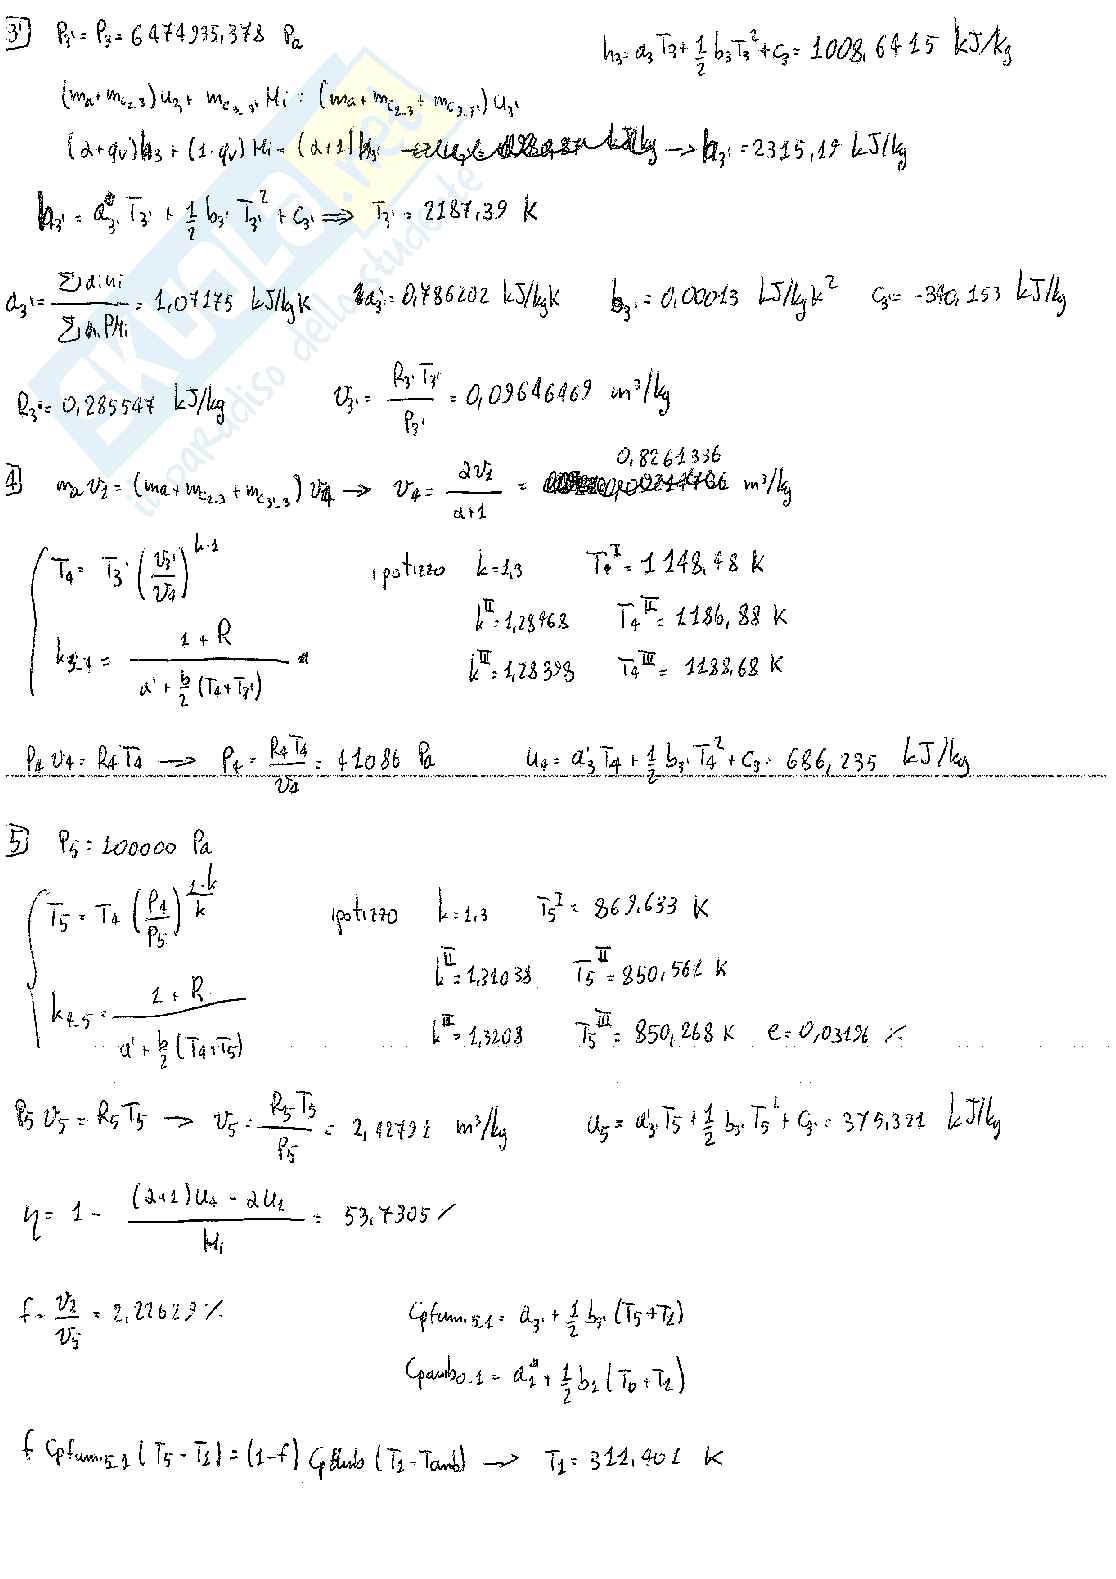 3' P3' = P3 = 6474935,378 Pa
h3 = a3 T3 + 1/2 b3 T3² + c3 = 1008,6415 kJ/kg
(ma + mc2-3) u3 + mc3-3' Hi = (ma + mc2-3 + mc3-3') u3'
(α + qv) h3 + (1 - qv) Hi = (α + 1) h3' → h3' = 2315,19 kJ/kg
h3' = a3' T3' + 1/2 b3' T3'² + c3' ⇒ T3' = 2187,39 K
a3' = = 1,07175 kJ/kgK a'3' = 0,786202 kJ/kgK b3' = 0,00013 kJ/kgK² c3' = -340,153 kJ/kg
R3' = 0,285547 kJ/kg v3' = R3' T3' / P3' = 0,09646469 m³/kg
4 ma v1 = (ma + mc2-3 + mc3'-3) v4 → v4 = αv1 / α+1 = 0,8261336 m³/kg
T4 = T3' (v3' / v4)^k-1 ipotizzo k = 1,3 T4^I = 1148,48 K
k^II = 1,28468 T4^II = 1186,88 K
k3-4 = 1 + R / a' + b/2 (T4 + T3') k^III = 1,28398 T4^III = 1188,68 K
P4 v4 = R4 T4 → P4 = R4 T4 / v4 = 41086 Pa u4 = a'3' T4 + 1/2 b3' T4² + c3' = 686,235 kJ/kg
5 P5 = 100000 Pa
T5 = T4 (P4 / P5)^1-k/k ipotizzo k = 1,3 T5^I = 869,633 K
k^II = 1,31038 T5^II = 850,561 K
k4-5 = 1 + R / a' + b/2 (T4 + T5) k^III = 1,3208 T5^III = 850,268 K e = 0,03196 %
P5 v5 = R5 T5 → v5 = R5 T5 / P5 = 2,42791 m³/kg u5 = a'3' T5 + 1/2 b3' T5² + c3' = 375,321 kJ/kg
η = 1 - (α+1) u4 - αu1 / Hi = 53,7305 %
f = v2 / v5 = 2,22629 % Cpfum.5,1 = a3' + 1/2 b3' (T5 + T1)
Cpamb0-1 = a1 + 1/2 b1 (T0 + T1)
f Cpfum.5,1 (T5 - T1) = (1-f) Cpamb (T1 - Tamb) → T1 = 311,401 K
SKUOLA.net
il paradiso dello studente